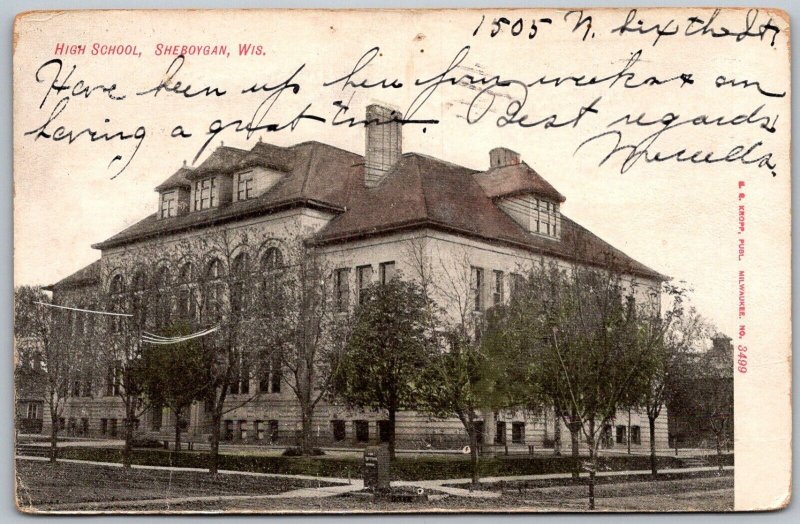 HIGH SCHOOL, SHEBOYGAN, WIS.
1505 N. Sixth St.
Have been up here four weeks & am
having a great time. Best regards
E. C. KROPP, PUBL. MILWAUKEE. NO. 3499